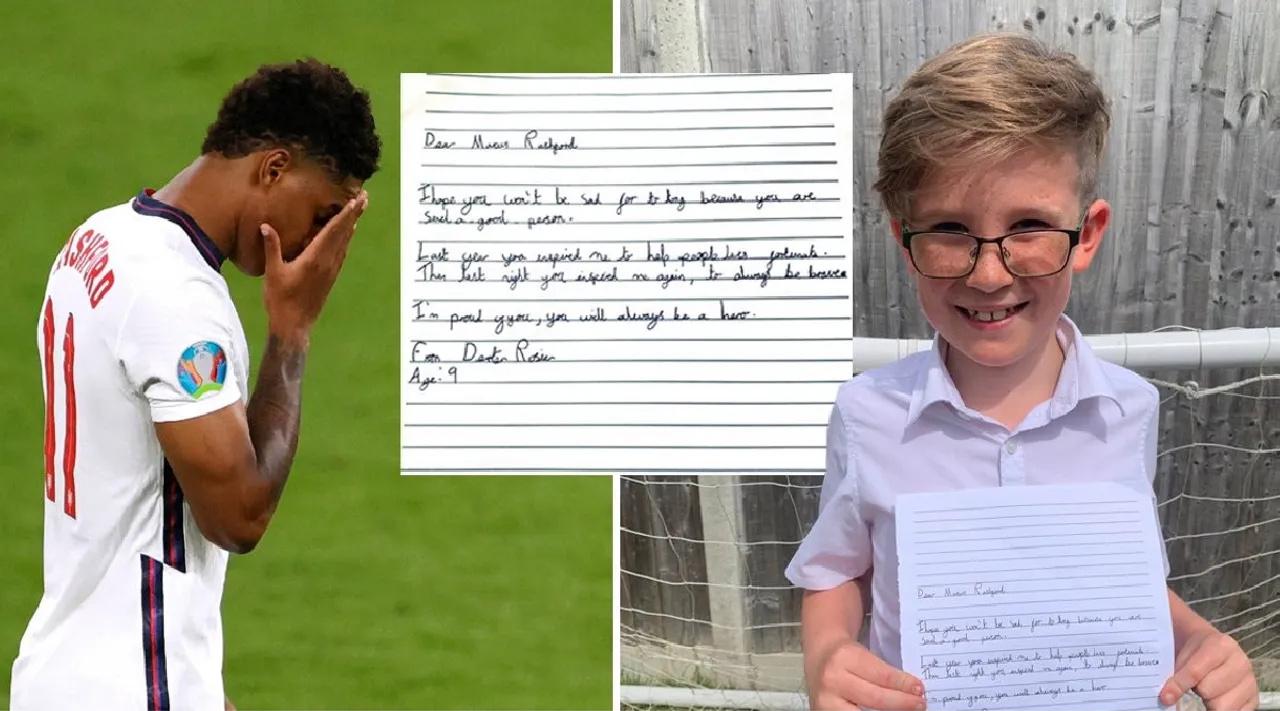 ASHFORD
11
Dear Marcus Rashford
I hope you won't be sad for to long because you are
such a good person.
Last year you inspired me to help people less fortunate.
Then last night you inspired me again, to always be brave
I'm proud of you, you will always be a hero.
From Dexter Rosier
Age: 9
Dear Marcus Rashford
I hope you won't be sad for to long because you are
such a good person.
Last year you inspired me to help people less fortunate.
Then last night you inspired me again, to always be brave
I'm proud of you, you will always be a hero.